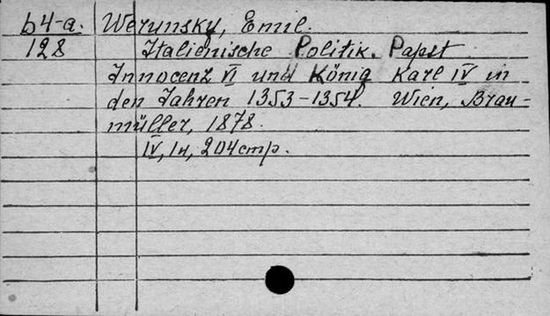 b4-a. Werunsky, Emil.
128 Italienische Politik. Papst
Innocenz VI und König Karl IV in
den Jahren 1353-1354. Wien, Brau-
müller, 1878.
IV, 1н, 204стр.